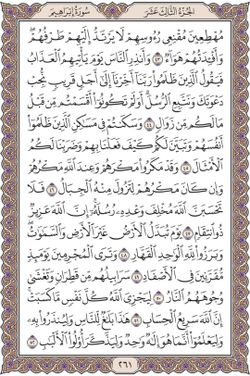 سُورَةُ إِبْرَاهِيمَ
الجُزْءُ الثَّالِثَ عَشَرَ
مُهْطِعِينَ مُقْنِعِي رُءُوسِهِمْ لَا يَرْتَدُّ إِلَيْهِمْ طَرْفُهُمْ
وَأَفْـِٔدَتُهُمْ هَوَآءٌ ٤٣ وَأَنذِرِ النَّاسَ يَوْمَ يَأْتِيهِمُ الْعَذَابُ
فَيَقُولُ الَّذِينَ ظَلَمُوا رَبَّنَآ أَخِّرْنَآ إِلَىٰٓ أَجَلٍ قَرِيبٍ نُّجِبْ
دَعْوَتَكَ وَنَتَّبِعِ الرُّسُلَ أَوَلَمْ تَكُونُوٓا أَقْسَمْتُم مِّن قَبْلُ
مَا لَكُم مِّن زَوَالٍ ٤٤ وَسَكَنتُمْ فِي مَسَٰكِنِ الَّذِينَ ظَلَمُوٓا
أَنفُسَهُمْ وَتَبَيَّنَ لَكُمْ كَيْفَ فَعَلْنَا بِهِمْ وَضَرَبْنَا لَكُمُ
الْأَمْثَالَ ٤٥ وَقَدْ مَكَرُوا مَكْرَهُمْ وَعِندَ اللَّهِ مَكْرُهُمْ
وَإِن كَانَ مَكْرُهُمْ لِتَزُولَ مِنْهُ الْجِبَالُ ٤٦ فَلَا
تَحْسَبَنَّ اللَّهَ مُخْلِفَ وَعْدِهِ رُسُلَهُٓ إِنَّ اللَّهَ عَزِيزٌ
ذُو انتِقَامٍ ٤٧ يَوْمَ تُبَدَّلُ الْأَرْضُ غَيْرَ الْأَرْضِ وَالسَّمَٰوَٰتُ
وَبَرَزُوا لِلَّهِ الْوَٰحِدِ الْقَهَّارِ ٤٨ وَتَرَى الْمُجْرِمِينَ يَوْمَئِذٍ
مُّقَرَّنِينَ فِي الْأَصْفَادِ ٤٩ سَرَابِيلُهُم مِّن قَطِرَانٍ وَتَغْشَىٰ
وُجُوهَهُمُ النَّارُ ٥٠ لِيَجْزِيَ اللَّهُ كُلَّ نَفْسٍ مَّا كَسَبَتْ
إِنَّ اللَّهَ سَرِيعُ الْحِسَابِ ٥١ هَٰذَا بَلَٰغٌ لِّلنَّاسِ وَلِيُنذَرُوا بِهِ
وَلِيَعْلَمُوٓا أَنَّمَا هُوَ إِلَٰهٌ وَٰحِدٌ وَلِيَذَّكَّرَ أُولُوا الْأَلْبَٰبِ ٥٢
٢٦١